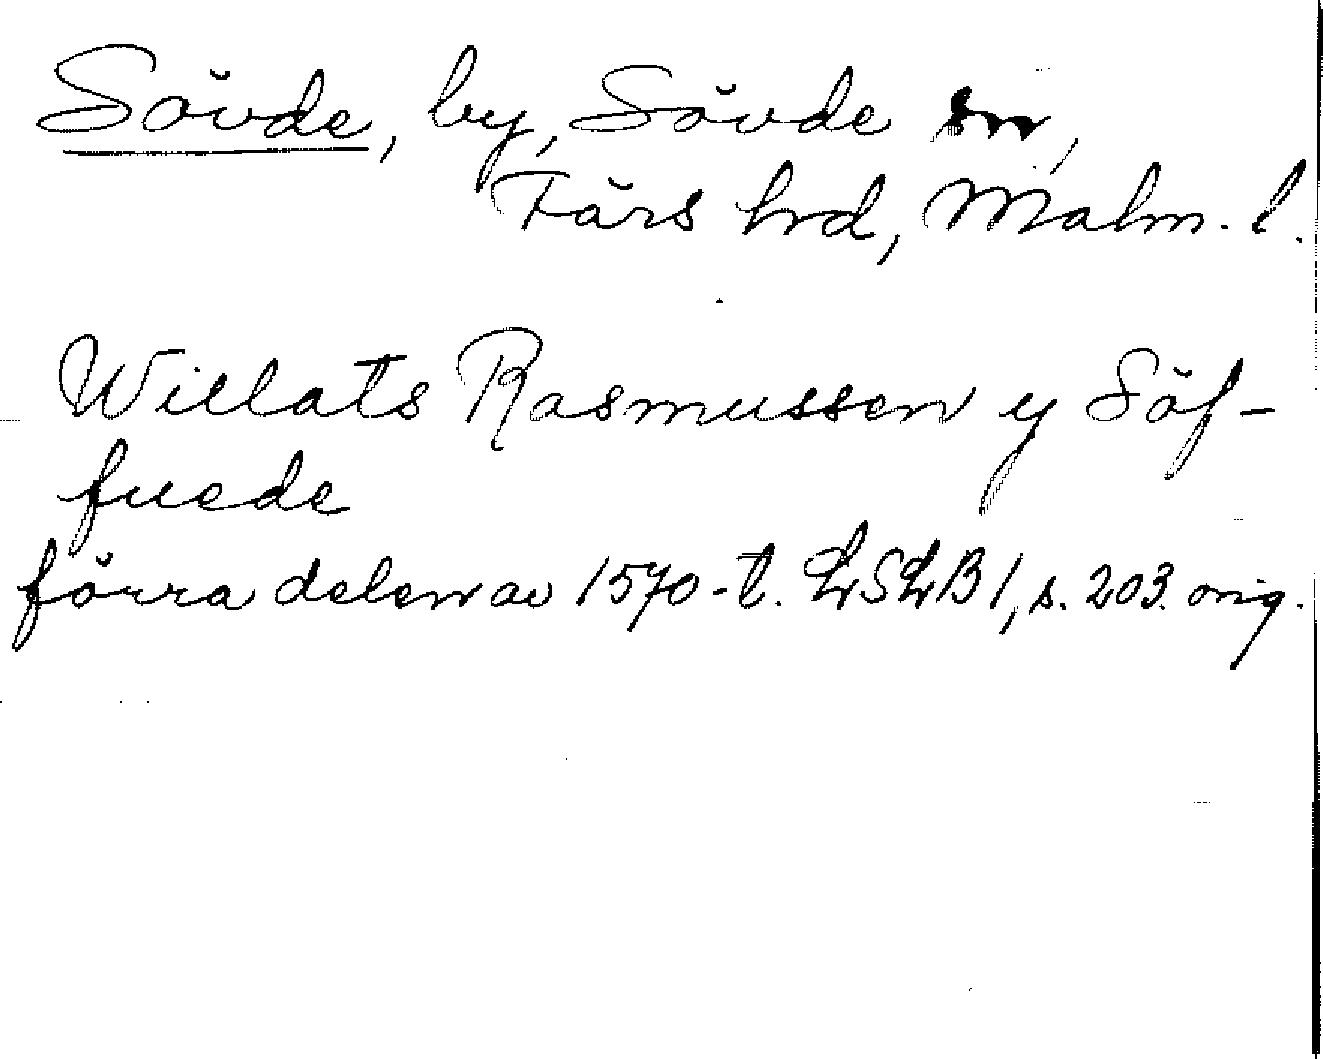 Sövde, by, Sövde sn,
Färs hrd, Malm. l.
Willats Rasmussen y Söf-
fuede
förra delen av 1570-t. LSLB 1, s. 203. orig.